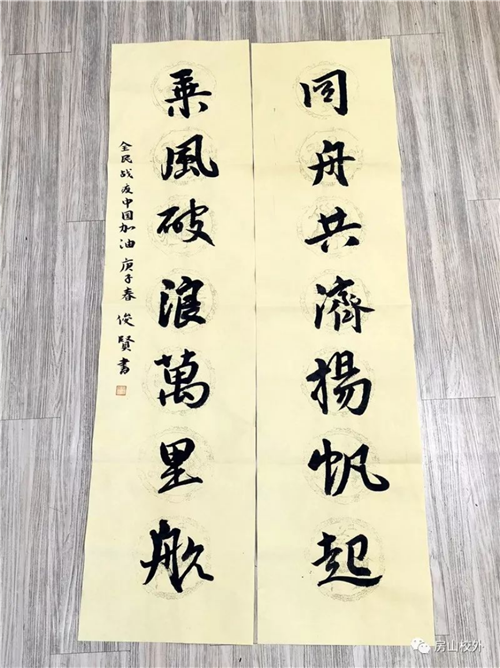 同舟共濟揚帆起
乘風破浪萬里航
全民战疫中国加油 庚子春 俊賢書
房山校外